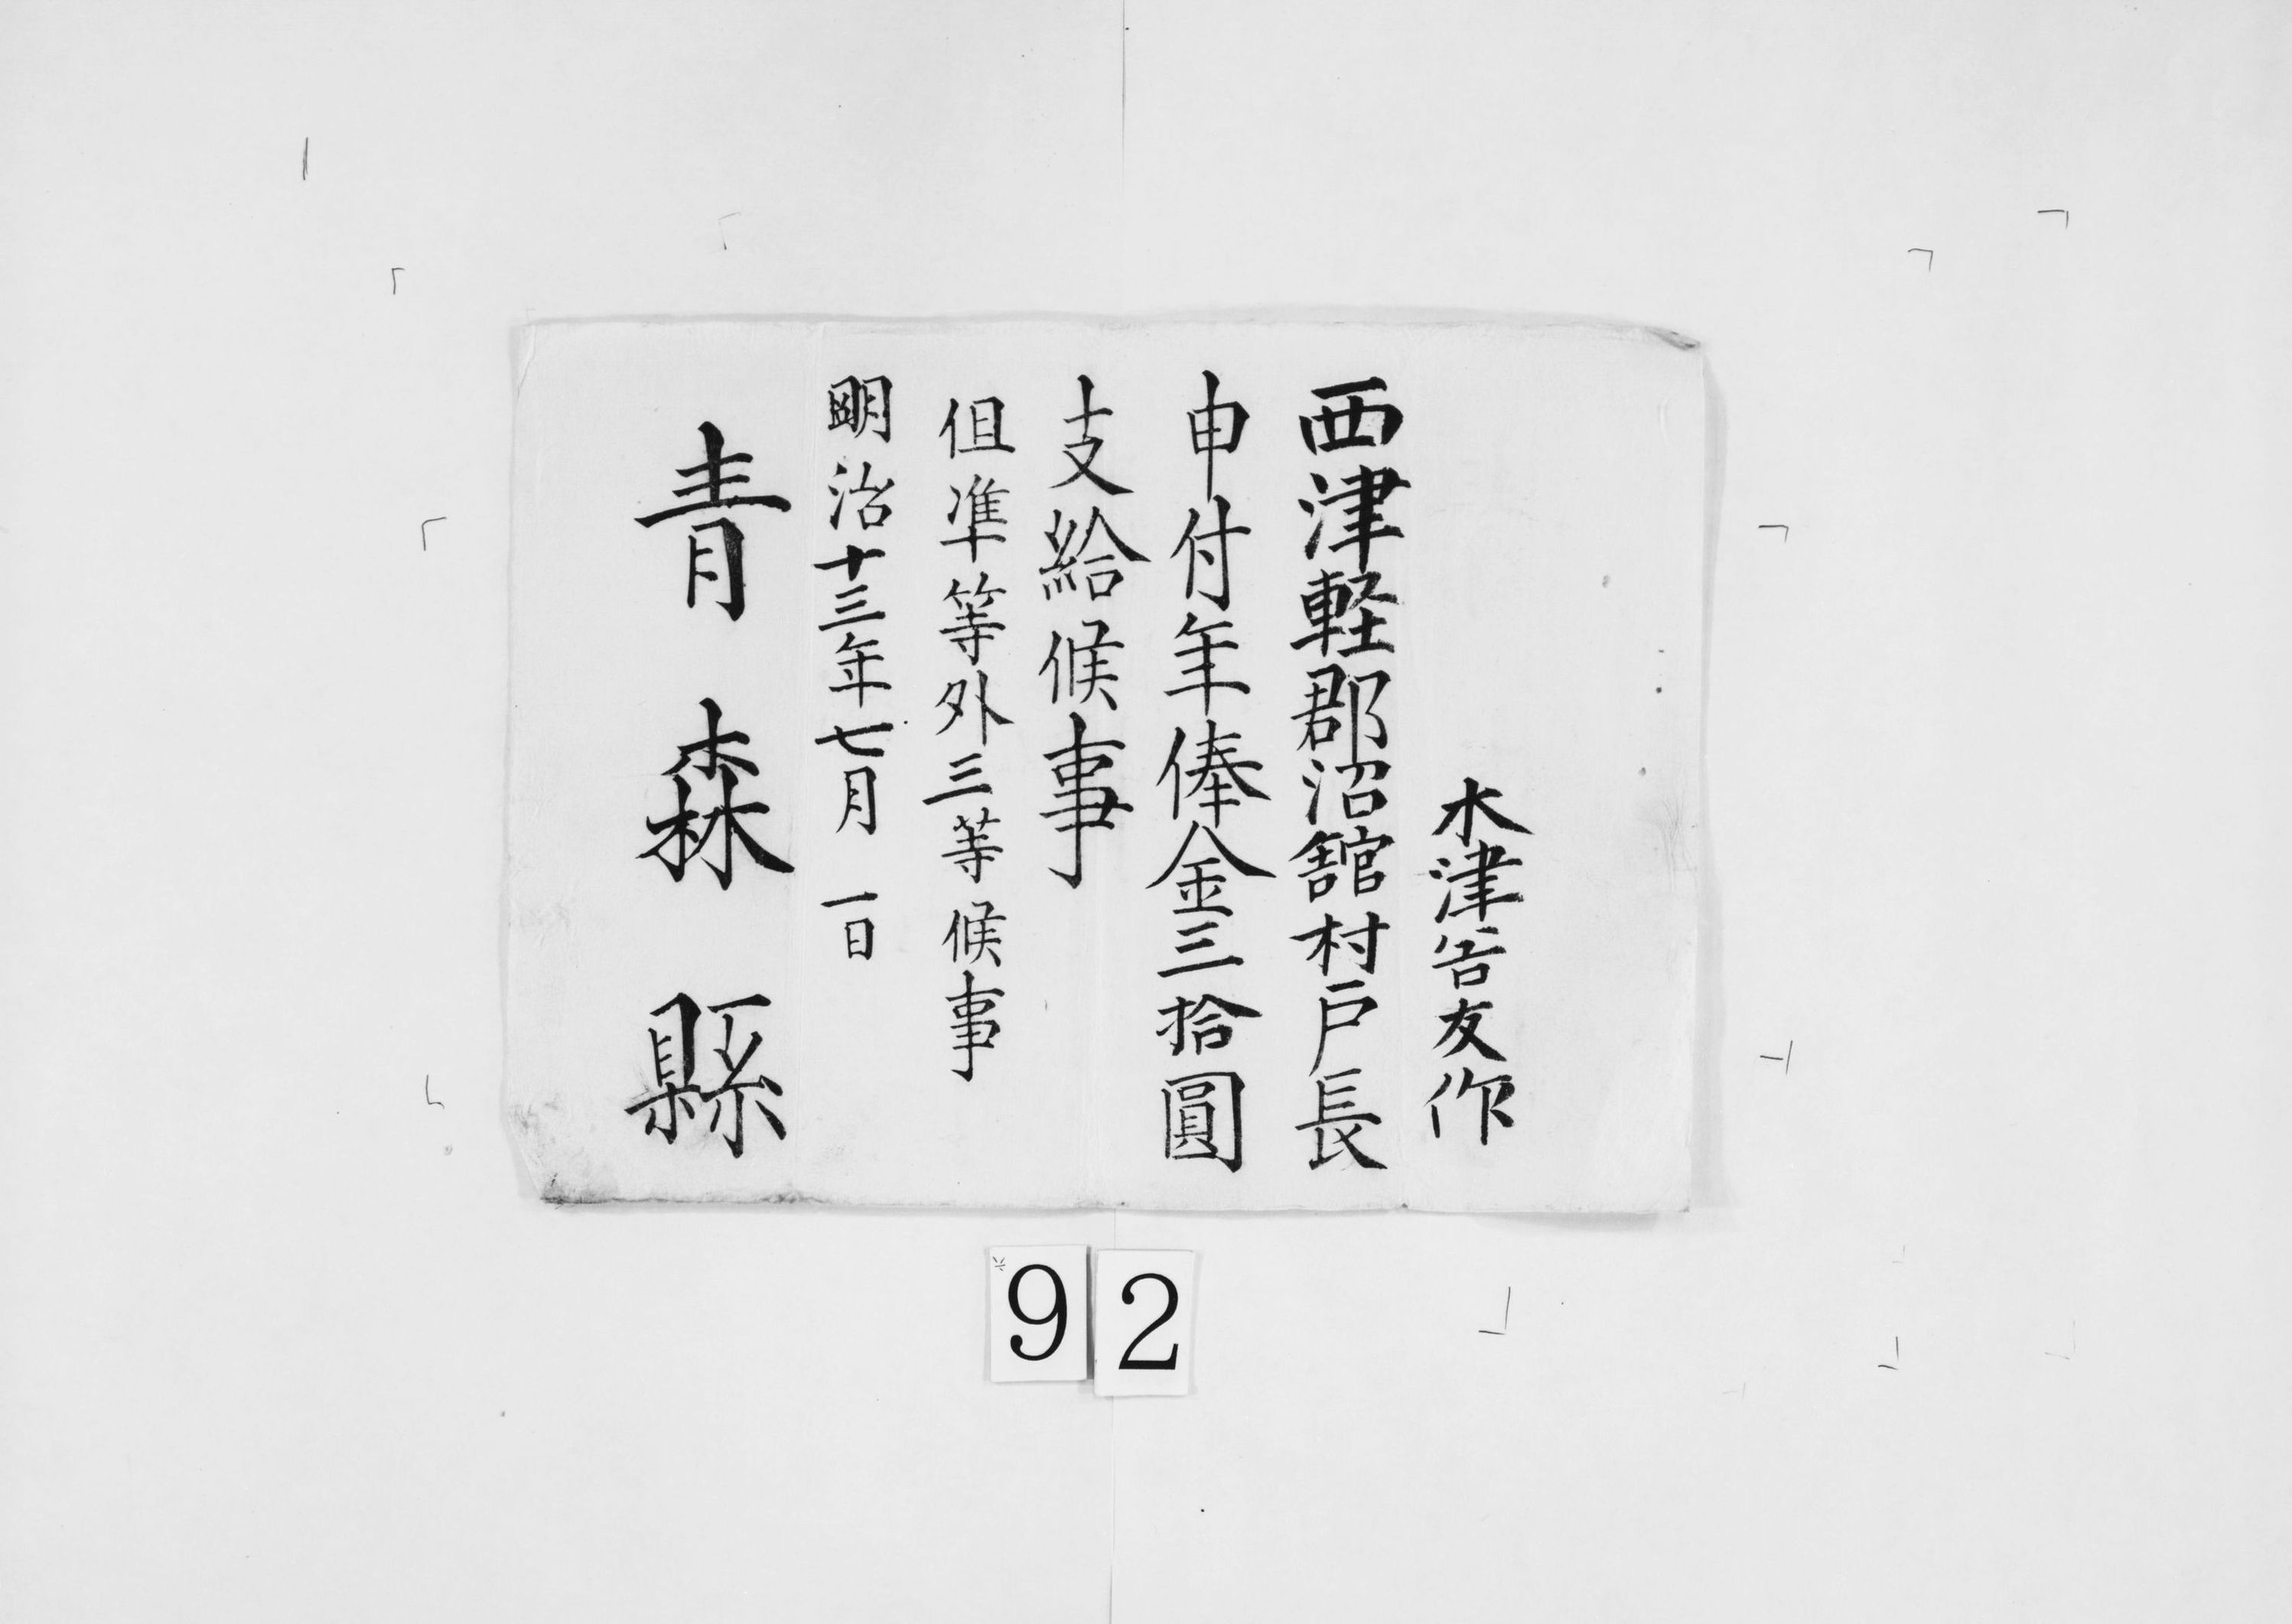 木津谷友作
西津軽郡沼舘村戸長
申付年俸金三拾圓
支給候事
但準等外三等候事
明治十三年七月一日
青森縣
92